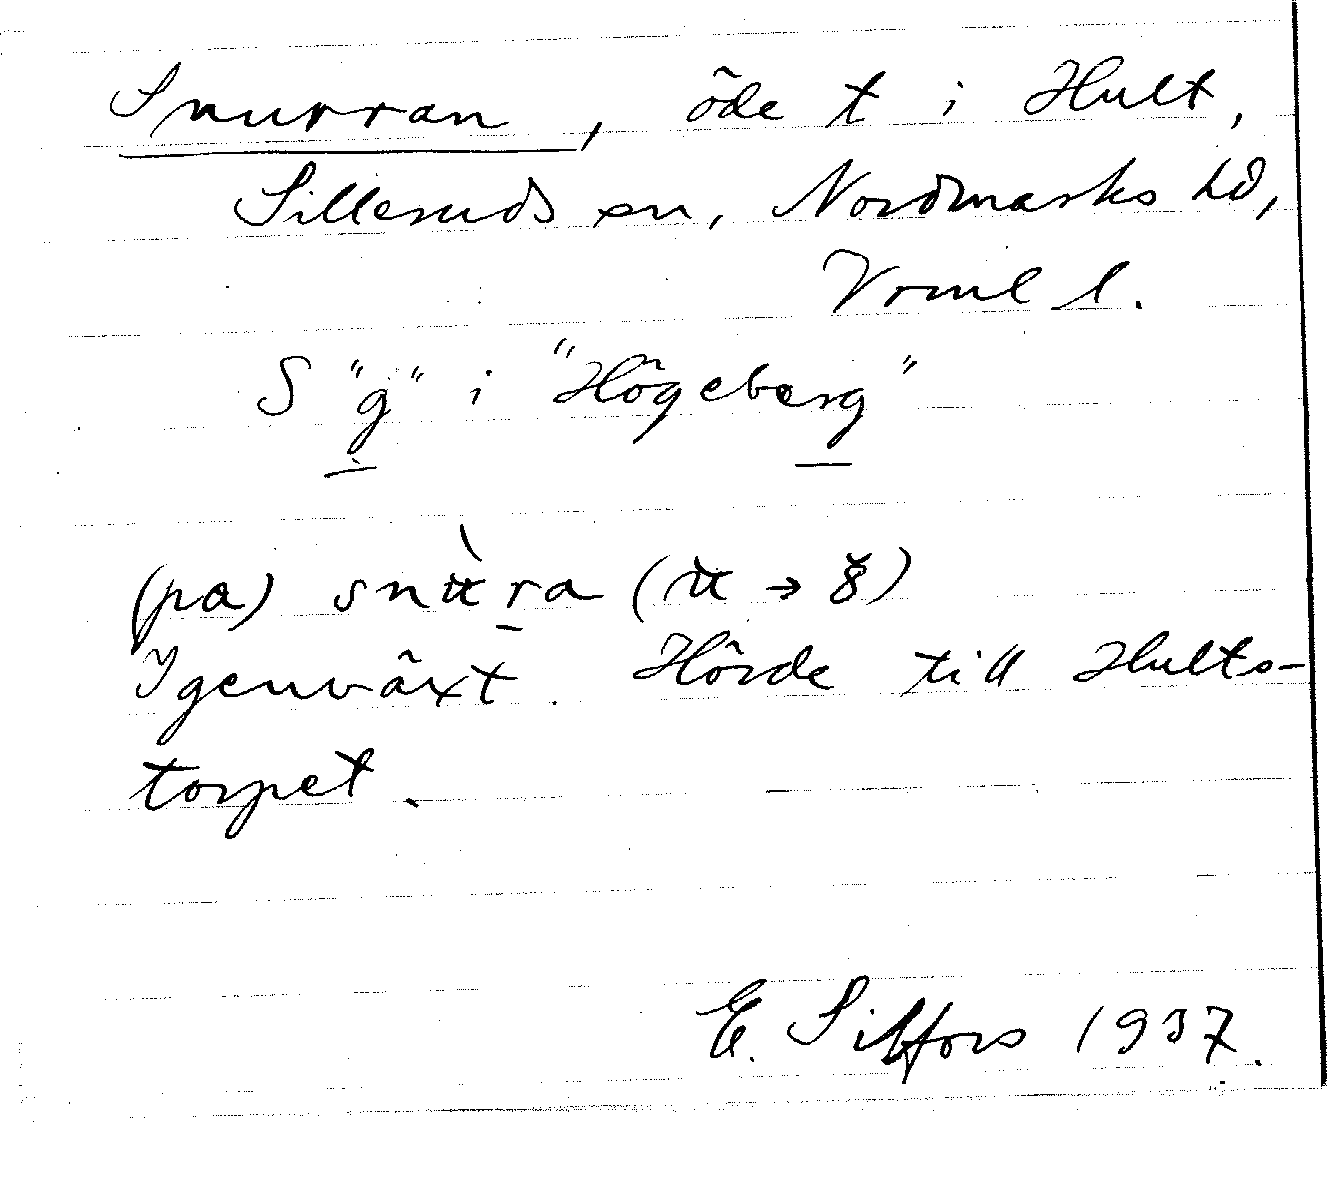 Snurran, öde t i Hult,
Silleruds sn, Nordmarks hd,
Vrml l.
S "g" i "Högeberg"
(pa) snu̇̀ra (u̇ → 8̌)
Igenväxt. Hörde till Hults-
torpet.
E. Silfors 1937.